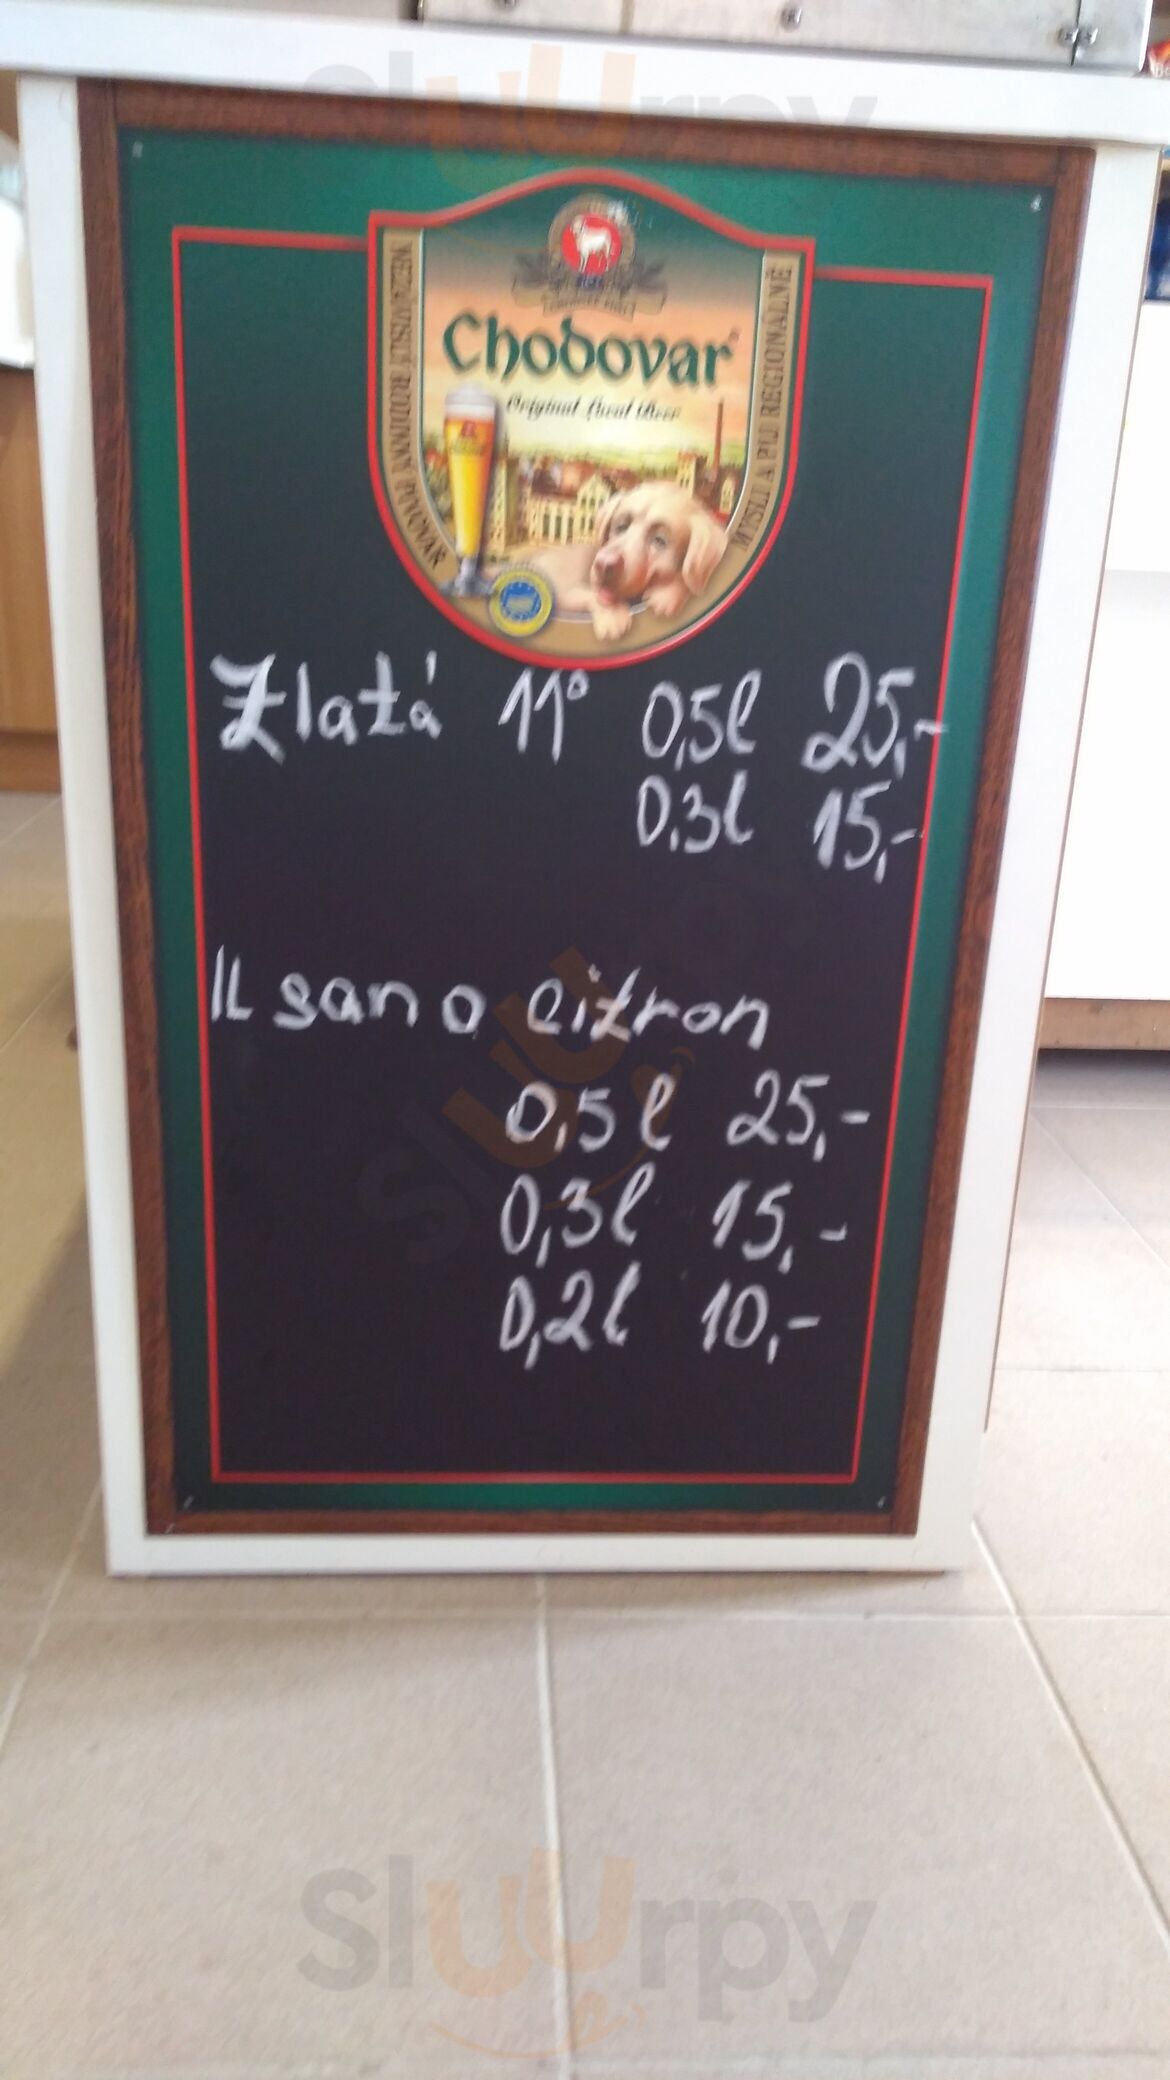 Chodovar
Original Local Beer
NEZÁVISLÝ RODINNÝ PIVOVAR
MYSLI A PIJ REGIONÁLNĚ
Zlatá 11° 0,5l 25,-
0.3l 15,-
IL sano citron
0,5l 25,-
0,3l 15,-
0,2l 10,-
Sluurpy
Sluurpy
Sluurpy